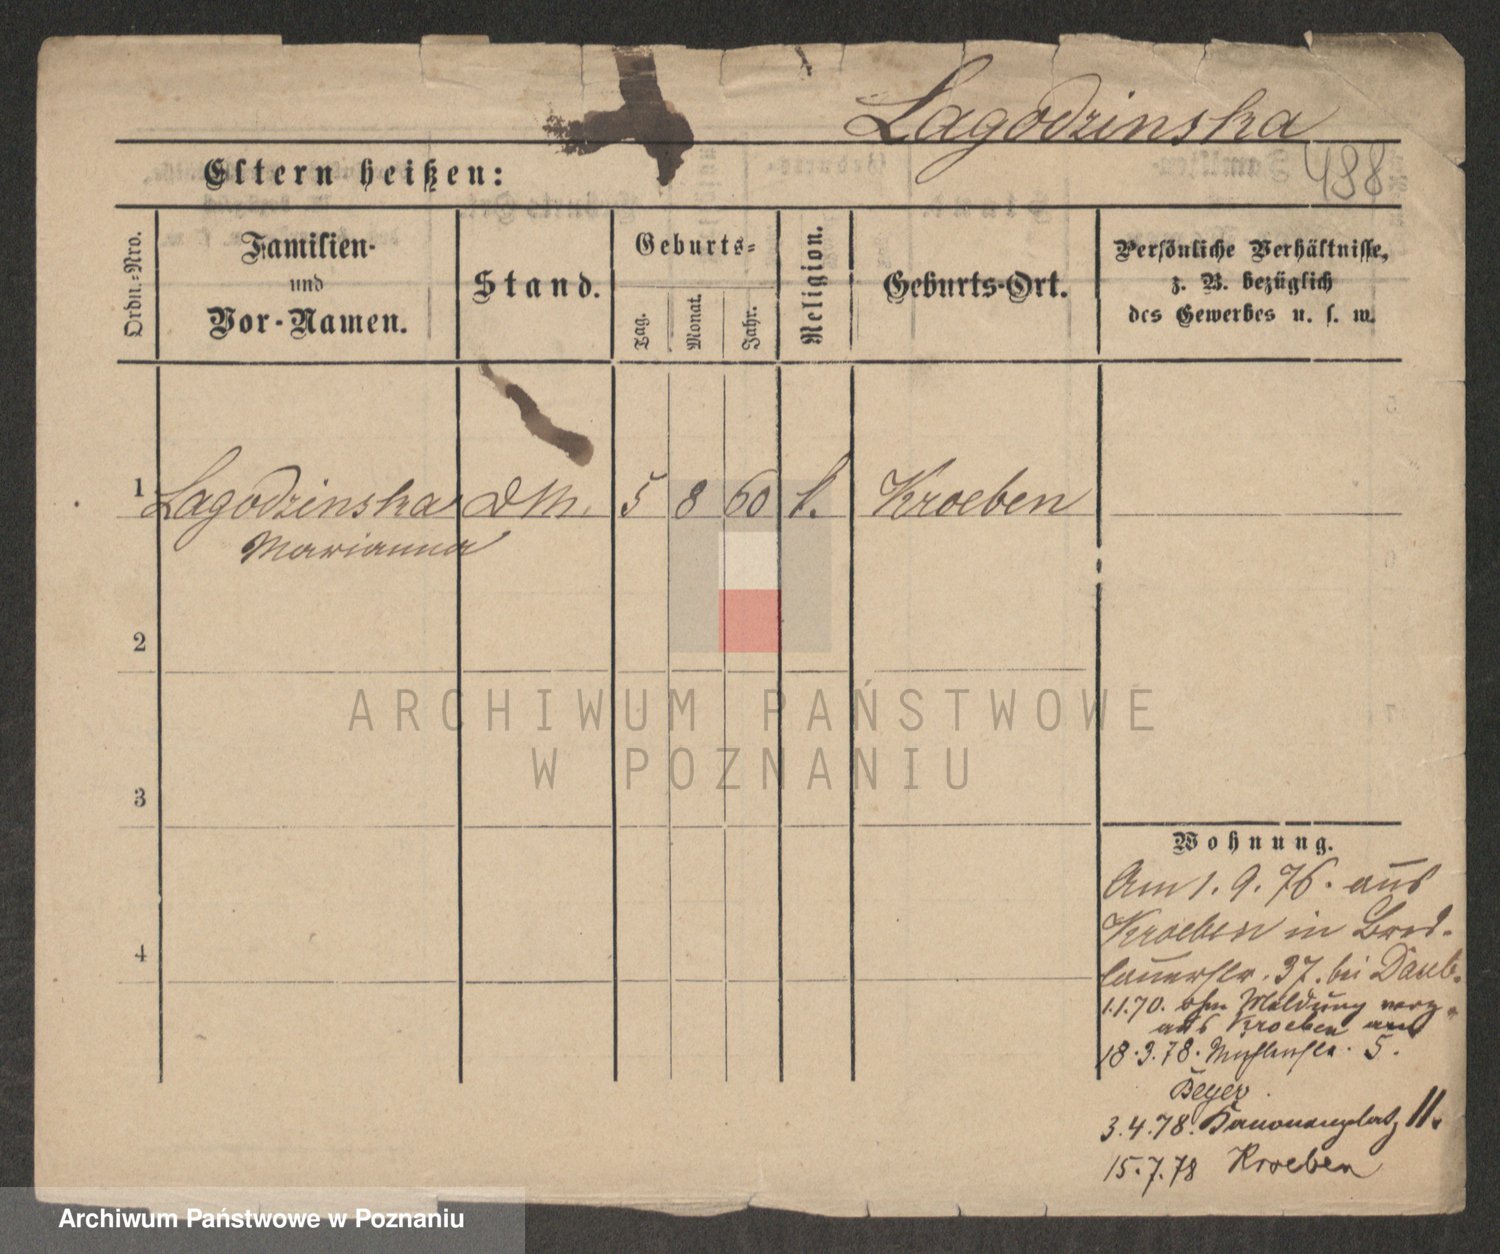 Lagodzinska
498
Eltern heißen:
Ordn.-Nro.
Familien-
und
Vor-Namen.
Stand.
Geburts-
Tag.
Monat.
Jahr.
Religion.
Geburts-Ort.
Persönliche Verhältnisse,
z. B. bezüglich
des Gewerbes u. s. w.
1 Lagodzinska DM. 5 8 60 k. Kroeben
Marianna
2
3
4
ARCHIWUM PAŃSTWOWE
W POZNANIU
Wohnung.
Am 1. 9. 76. aus
Kroeben in Bres-
lauerstr. 37. bei Daub.
1.1.70. ohn Meldung verz.
aus Kroeben
18.3.78. 5.
Beyer.
3.4.78. Kanonenplatz 11.
15.7.78 Kroeben
Archiwum Państwowe w Poznaniu